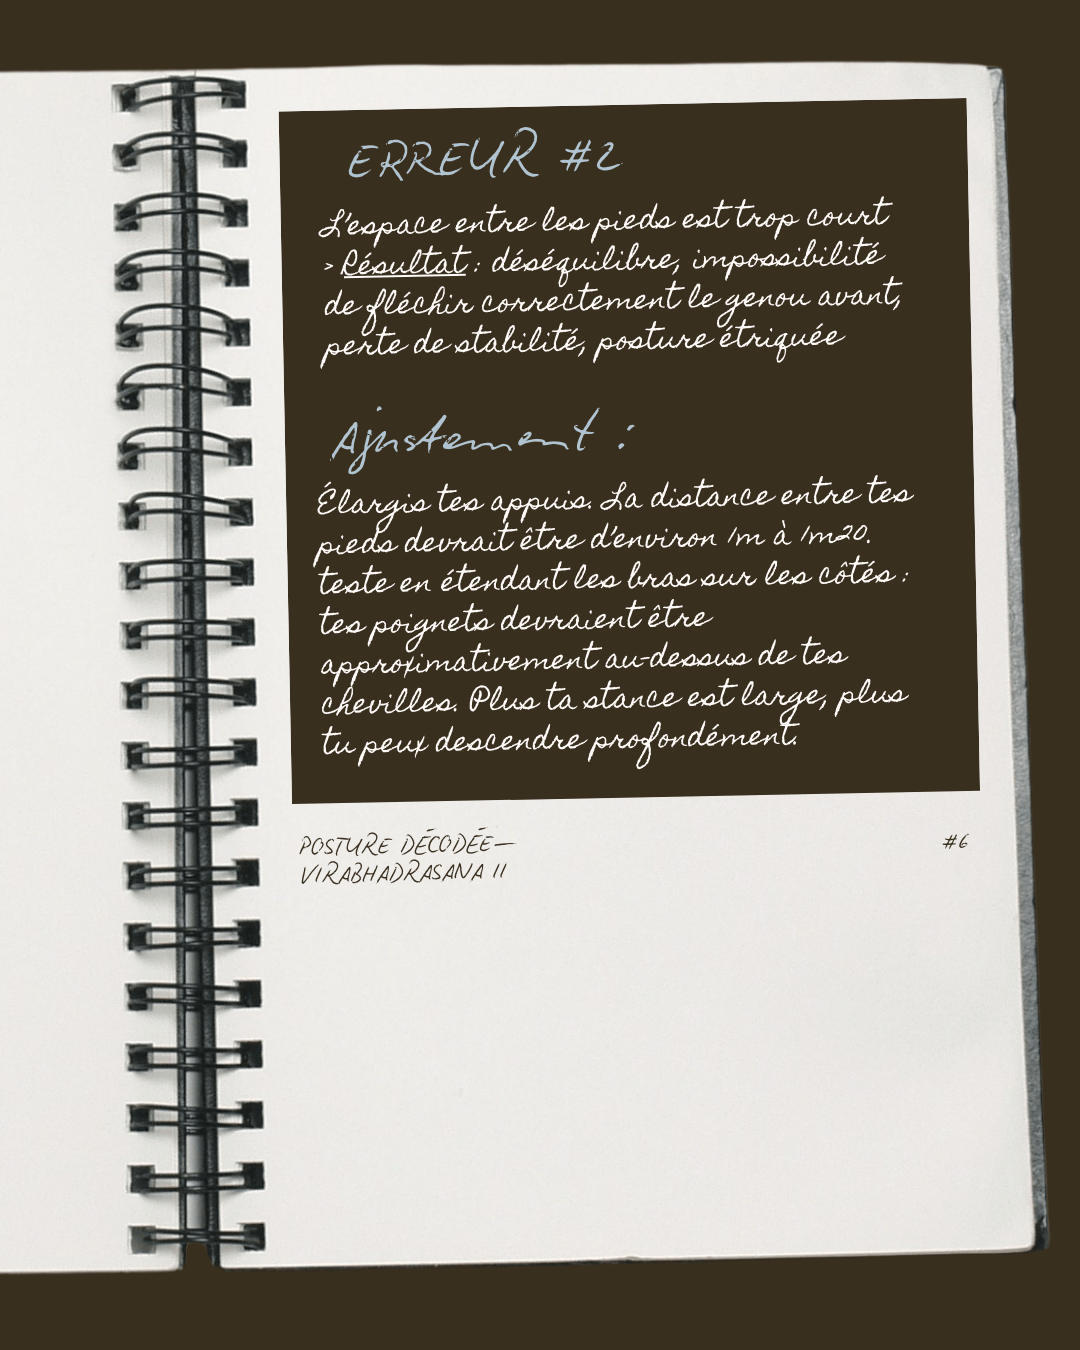 ERREUR #2
L'espace entre les pieds est trop court
> Résultat : déséquilibre, impossibilité
de fléchir correctement le genou avant,
perte de stabilité, posture étriquée
Ajustement :
Élargis tes appuis. La distance entre tes
pieds devrait être d'environ 1m à 1m20.
teste en étendant les bras sur les côtés :
tes poignets devraient être
approximativement au-dessus de tes
chevilles. Plus ta stance est large, plus
tu peux descendre profondément.
POSTURE DÉCODÉE—
VIRABHADRASANA II
#6